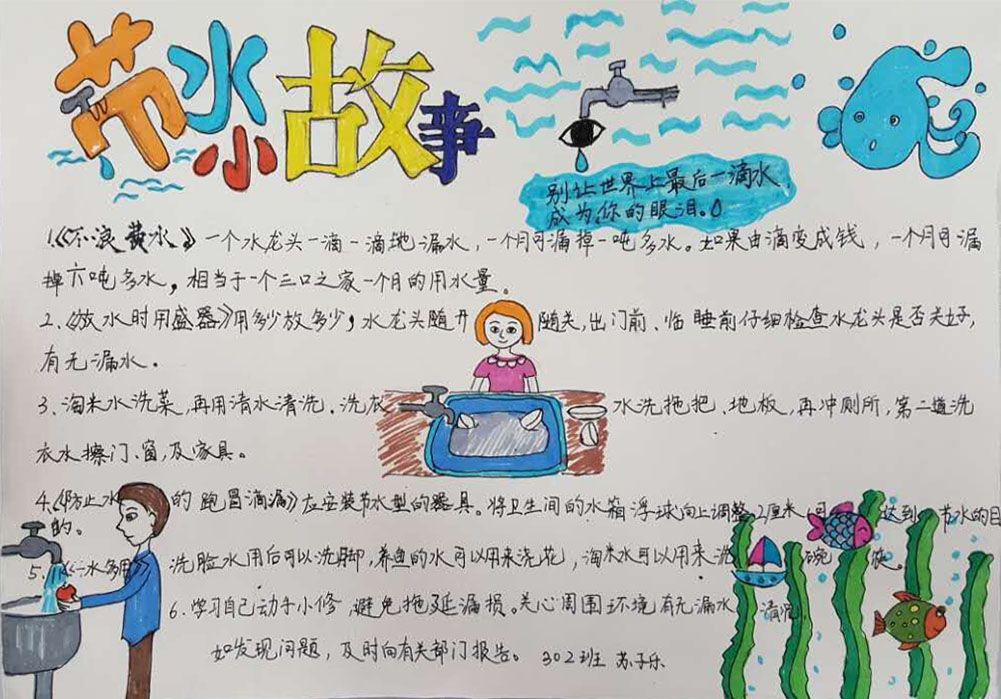 节水小故事
别让世界上最后一滴水,
成为你的眼泪。
1.《不浪费水。》一个水龙头一滴一滴地漏水,一个月可漏掉一吨多水。如果由滴变成线,一个月可漏
掉六吨多水,相当于一个三口之家一个月的用水量。
2、《放水时用盛器》用多少放多少,水龙头随开随关,出门前、临睡前仔细检查水龙头是否关好,
有无漏水。
3、淘米水洗菜,再用清水清洗.洗衣水洗拖把、地板,再冲厕所,第二道洗
衣水擦门、窗,及家具。
4.《防止水的跑冒滴漏》应安装节水型的器具。将卫生间的水箱浮球向上调整2厘米,可达到节水的目
的。
5.《一水多用 洗脸水用后可以洗脚,养鱼的水可以用来浇花,淘米水可以用来洗碗筷。
6.学习自己动手小修,避免拖延漏损。关心周围环境有无漏水情况,
如发现问题,及时向有关部门报告。302班 苏子乐